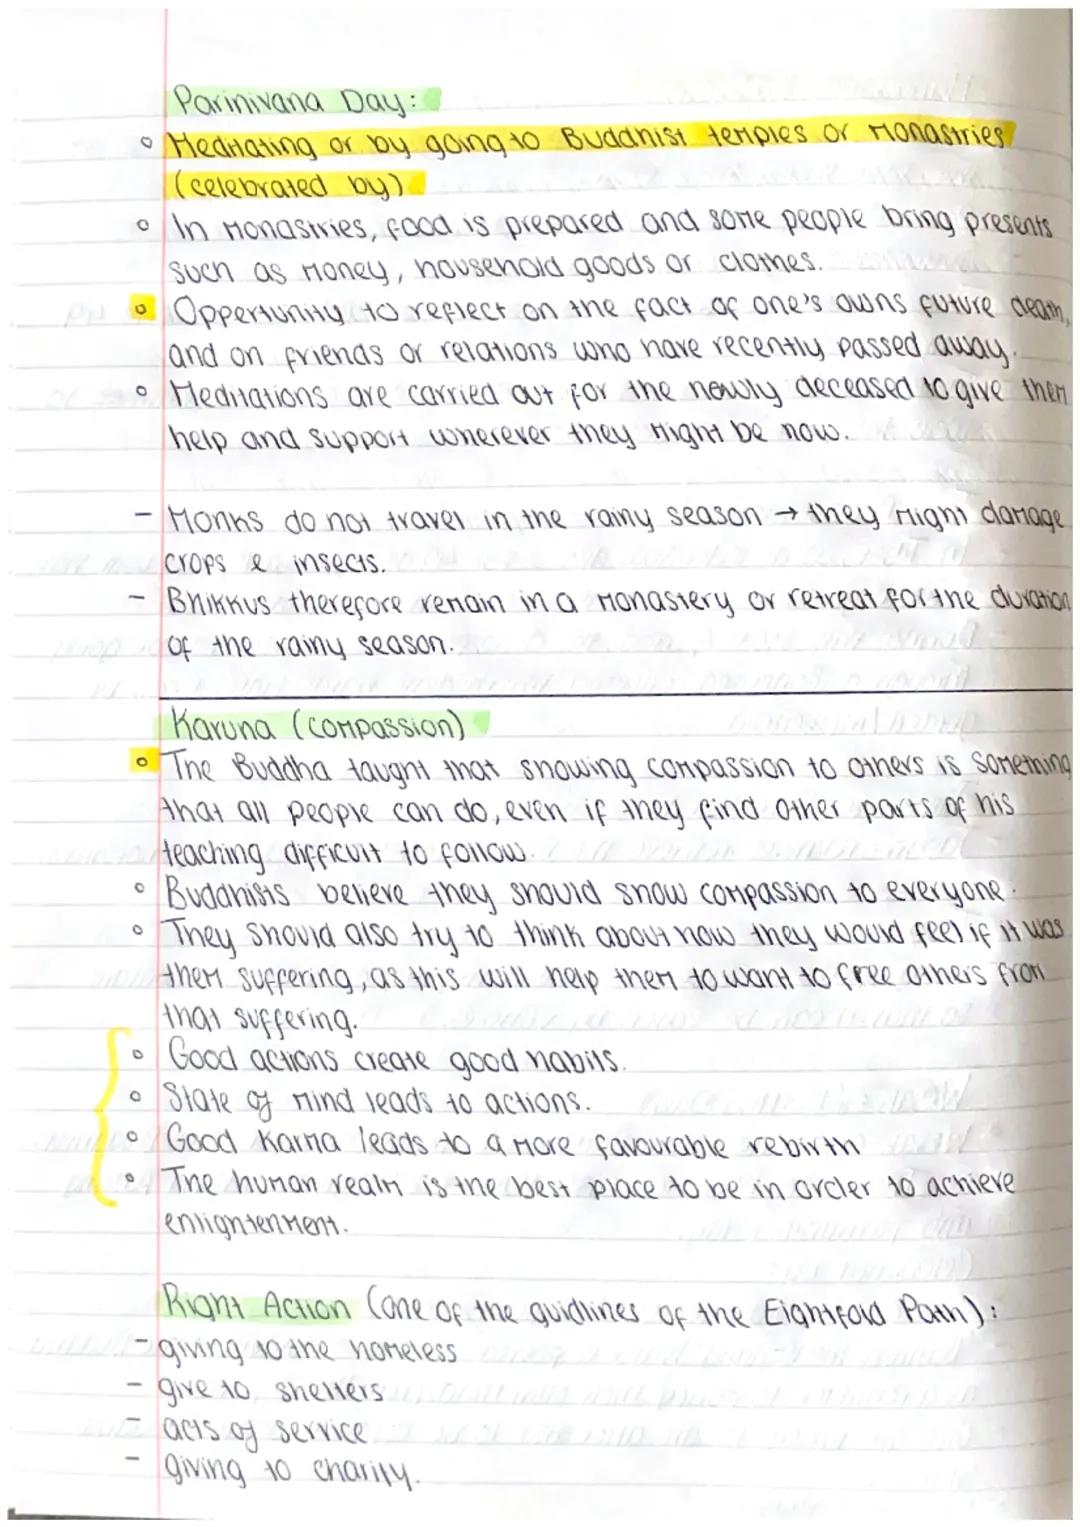 Parinivana Day:
Meditating or by going to Buddhist temples or Monastries
(celebrated by)
In Monastries, food is prepared and some people bring presents
such as money, household goods or clothes.
Oppertunity to reflect on the fact of one's owns future death,
and on friends or relations who have recently passed away.
Meditations are carried out for the newly deceased to give them
help and support wherever they might be now.
- Monks do not travel in the rainy season → they might damage
crops & insects.
- Bhikkus therefore remain in a monastery or retreat for the duration
of the rainy season.
Karuna (compassion)
The Buddha taught that showing compassion to others is something
that all people can do, even if they find other parts of his
teaching difficult to follow.
Buddhists believe they should show compassion to everyone.
They should also try to think about how they would feel if it was
them suffering, as this will help them to want to free others from
that suffering.
Good actions create good habits.
State of mind leads to actions.
Good Karma leads to a more favourable rebirth
The human realm is the best place to be in order to achieve
enlightenment.
Right Action (one of the guidlines of the Eightfold Path):
- giving to the homeless
- give to shelters
- acts of service
- giving to charity.